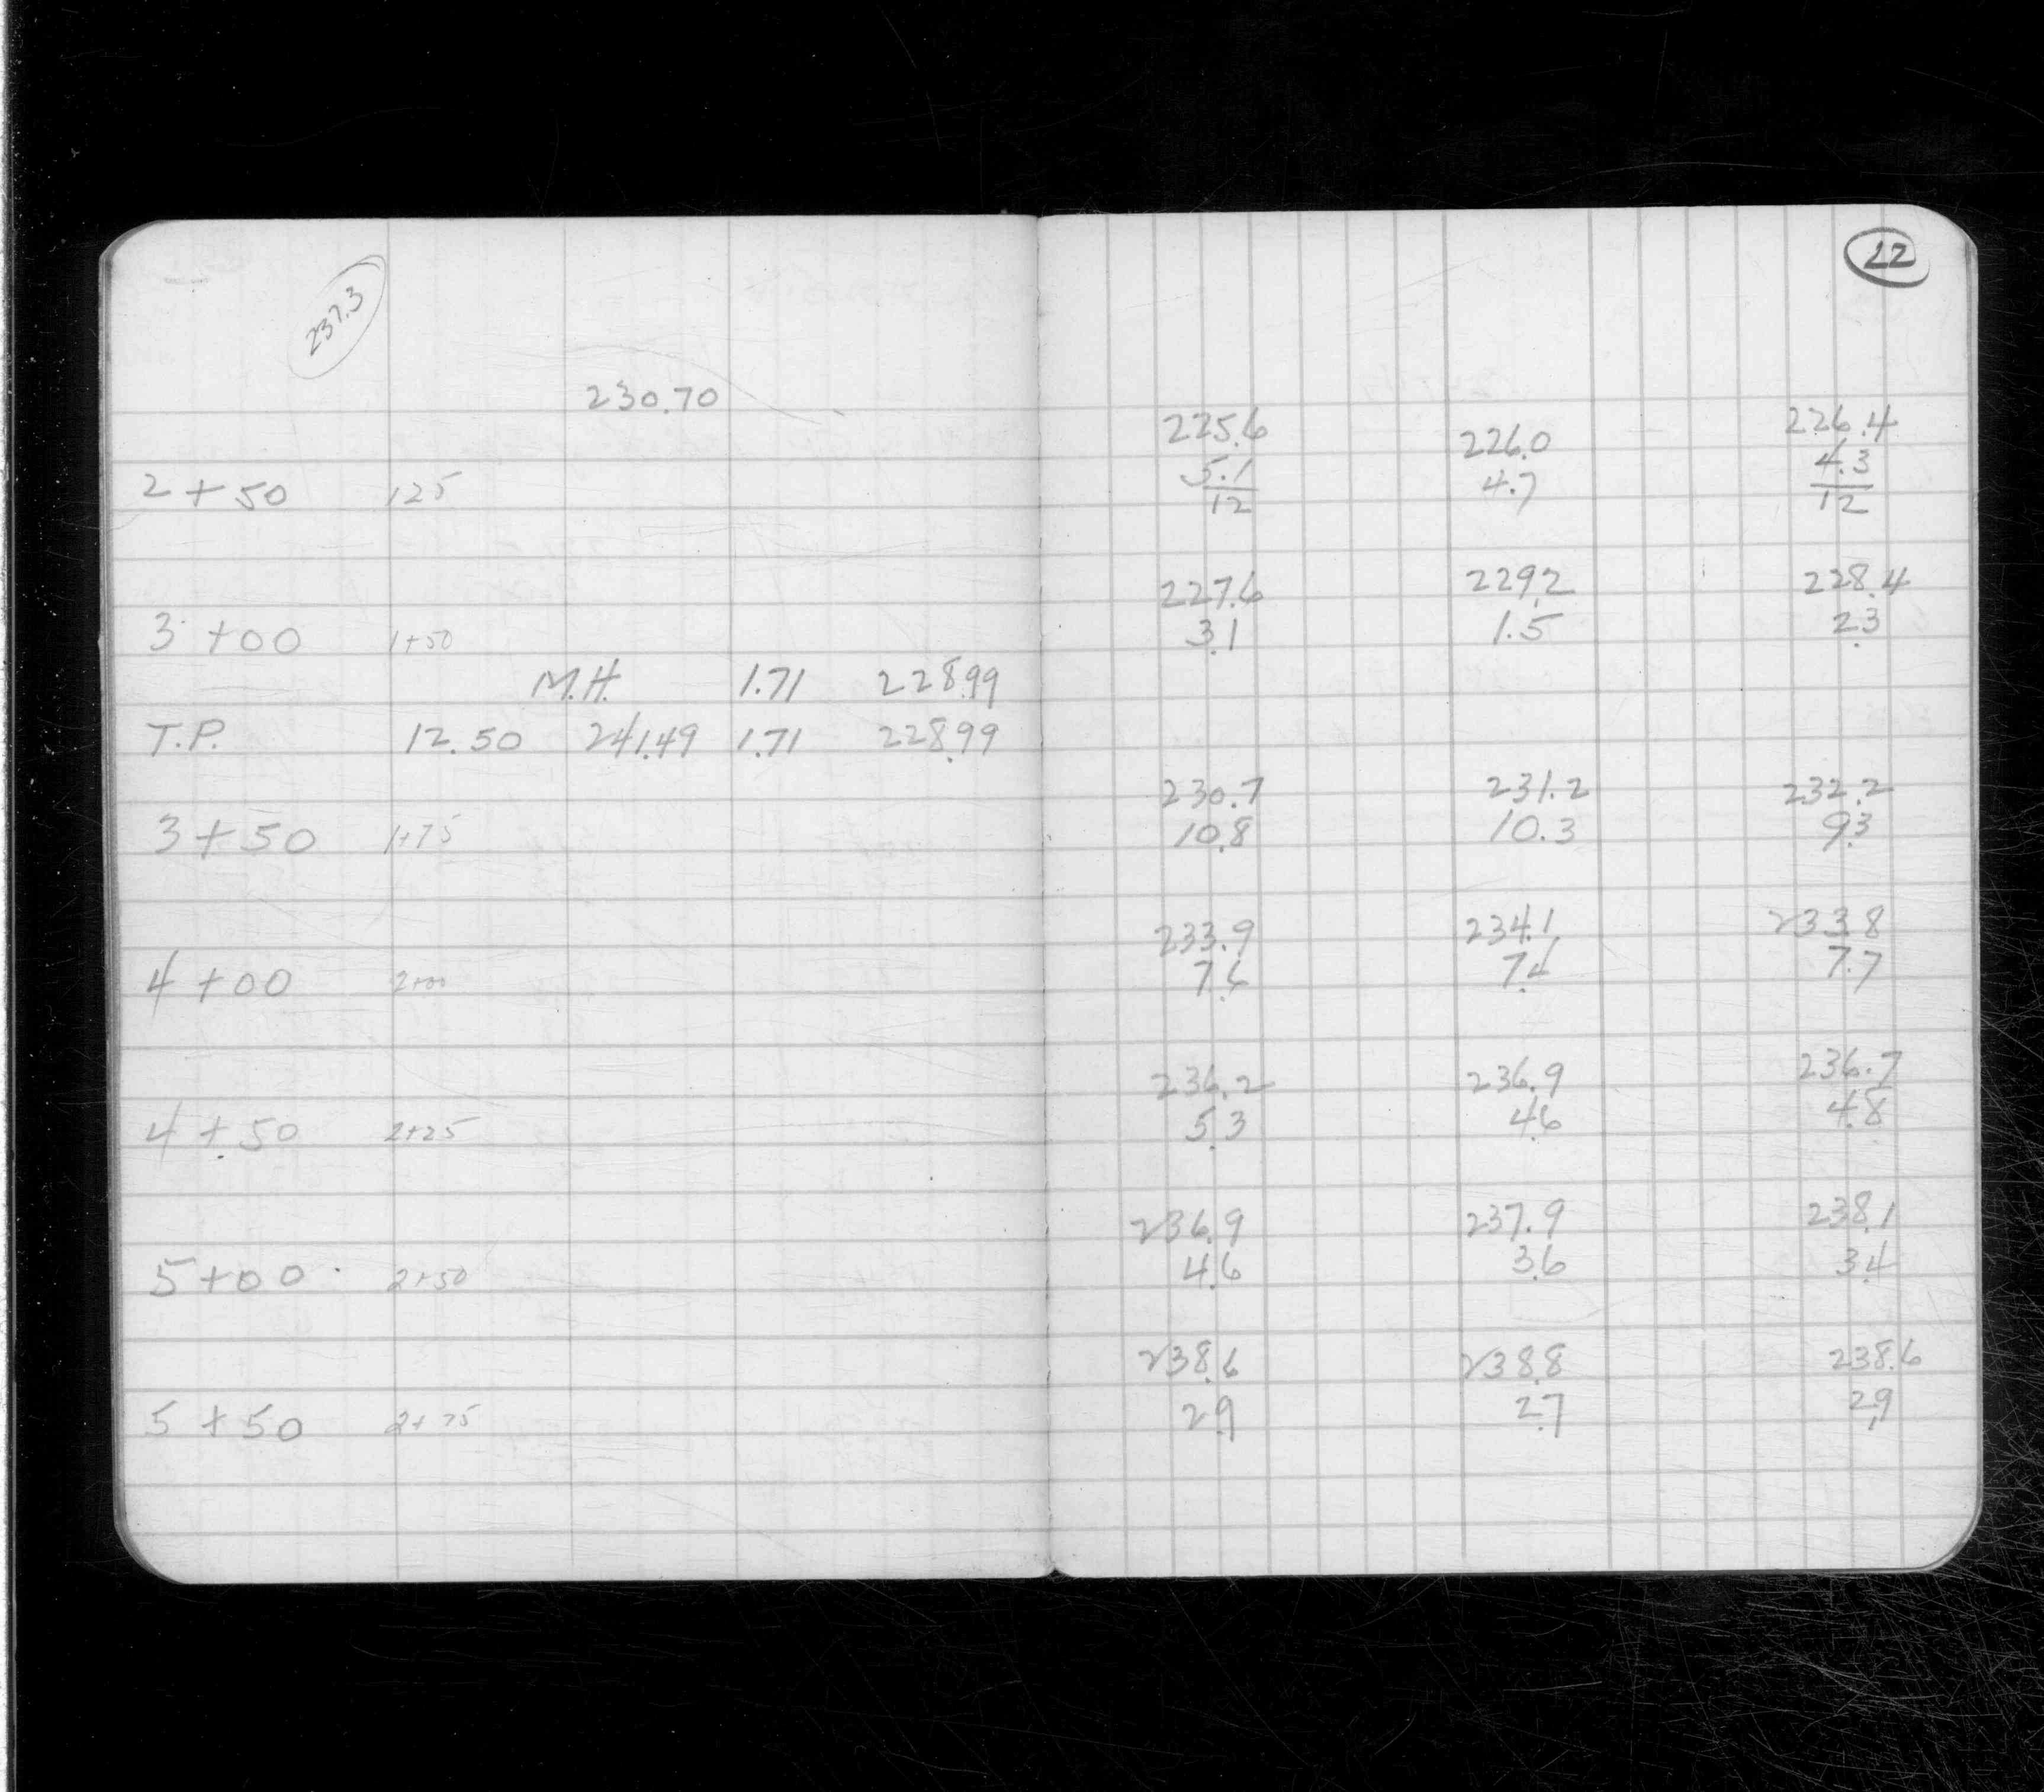 237.3
22
230.70
225.6 226.0 226.4
2+50 125 5.1 4.7 4.3
12 12
227.6 229.2 228.4
3+00 1+50 3.1 1.5 2.3
M.H. 1.71 228.99
T.P. 12.50 241.49 1.71 228.99
230.7 231.2 232.2
3+50 1+75 10.8 10.3 9.3
233.9 234.1 233.8
4+00 2+00 7.6 7.4 7.7
236.2 236.9 236.7
4+50 2+25 5.3 4.6 4.8
236.9 237.9 238.1
5+00 2+50 4.6 3.6 3.4
238.6 238.8 238.6
5+50 2+75 2.9 2.7 2.9